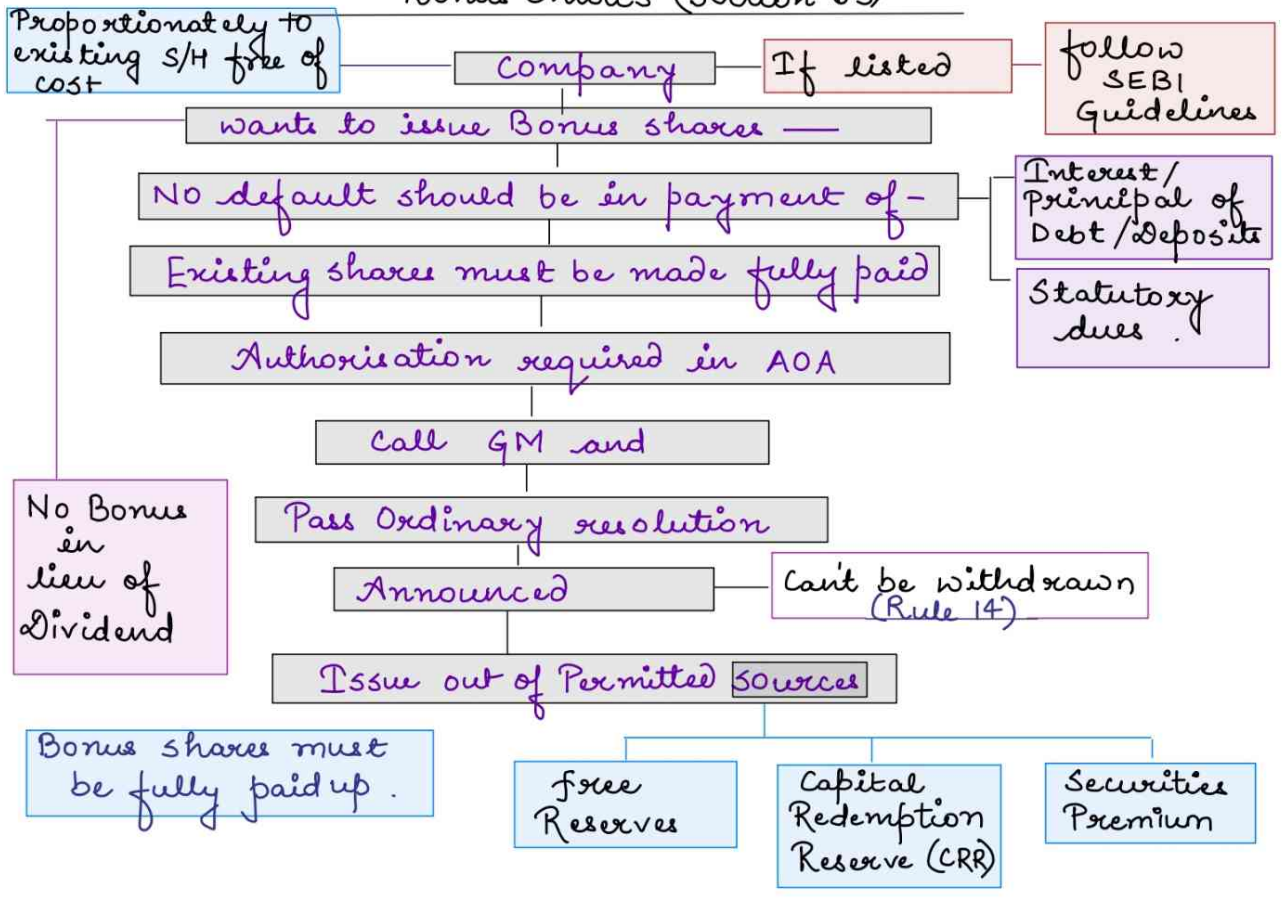 Bonus Shares (Section 63)
Proportionately to
existing S/H free of
cost
Company
If listed
follow
SEBI
Guidelines
wants to issue Bonus shares —
No default should be in payment of -
Interest/
Principal of
Debt/Deposits
Statutory
dues .
Existing shares must be made fully paid
Authorisation required in AOA
Call GM and
Pass Ordinary resolution
No Bonus
in
lieu of
Dividend
Announced
Can't be withdrawn
(Rule 14)
Issue out of Permitted sources
Bonus shares must
be fully paid up .
free
Reserves
Capital
Redemption
Reserve (CRR)
Securities
Premium